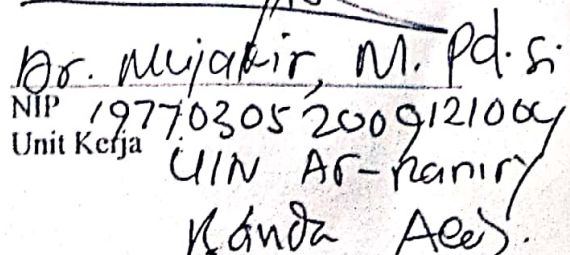 Dr. Mujakir, M. Pd. Si
NIP 19770305 200912 1004
Unit Kerja UIN Ar-Raniry
Banda Aceh.